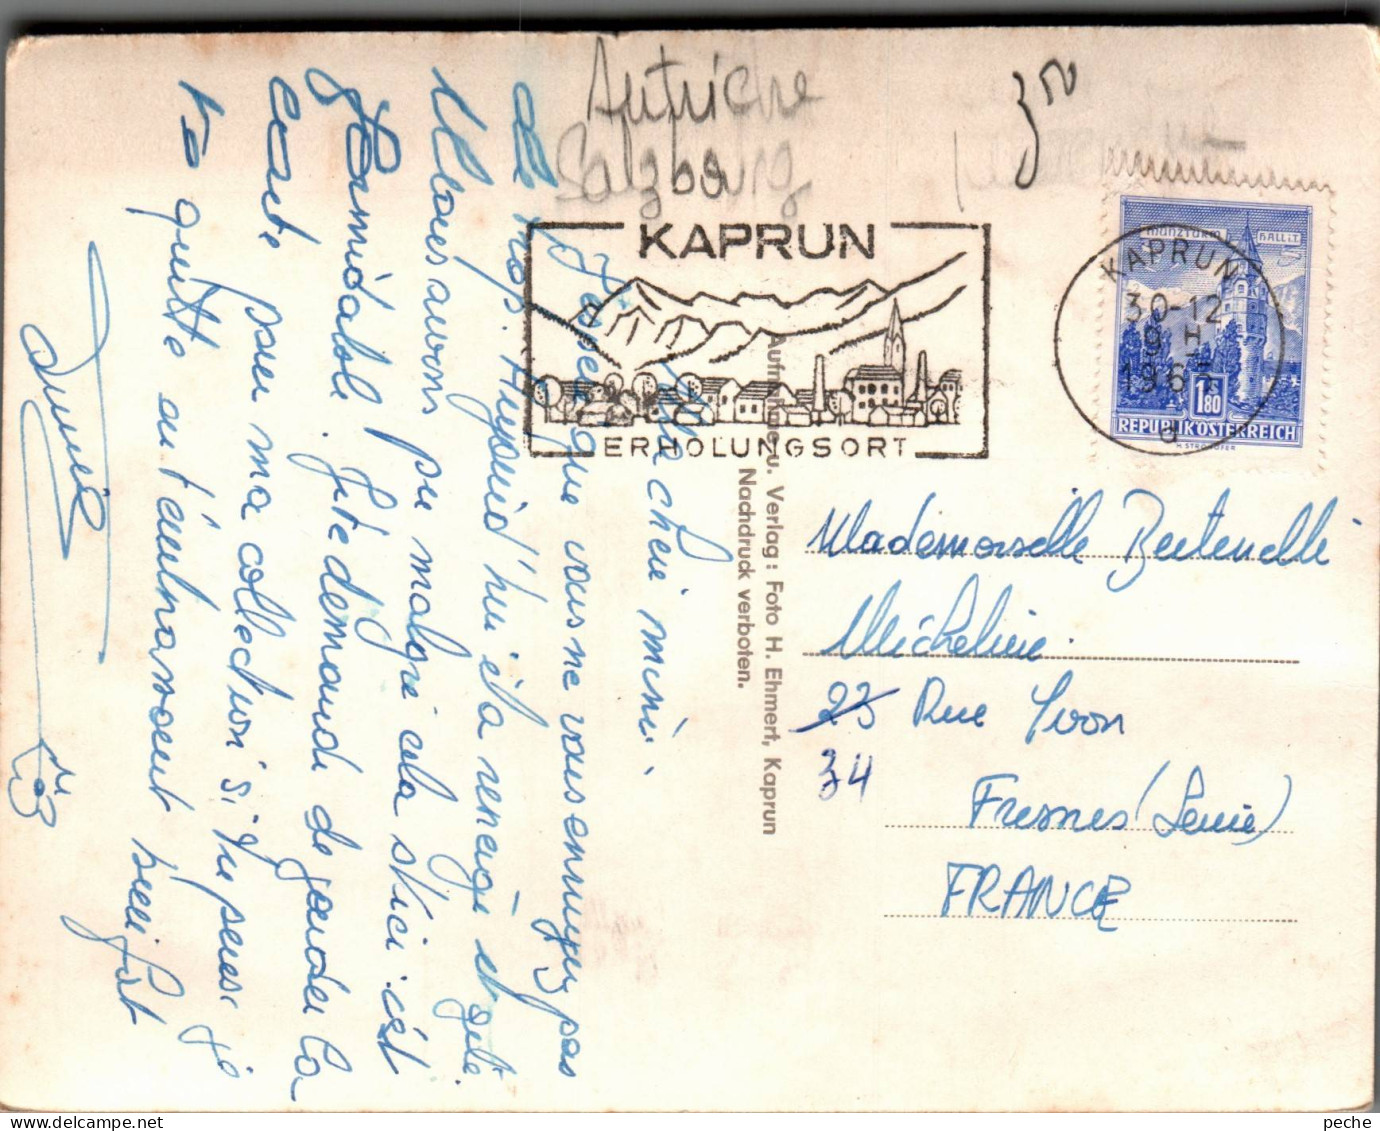 Autriche
Salzbourg
350
KAPRUN
ERHOLUNGSORT
KAPRUN
30-12
1967
d
MÜNZTURM HALL i.T.
1.80
REPUBLIK ÖSTERREICH
Aufnahme u. Verlag: Foto H. Ehmert, Kaprun
Nachdruck verboten.
Ma chère mimi.
J'espère que vous ne vous ennuyez pas
de nos. Aujourd'hui il a neigé et gelé
Nous avons pu malgré cela skier. c'est
formidable. Je te demande de garder la
carte pour ma collection si tu peux je
te quitte en t'embrassant bien fort
Mademoiselle Bertenelli
Micheline.
23 Rue Yvon
34
Fresnes (Seine)
FRANCE
peche